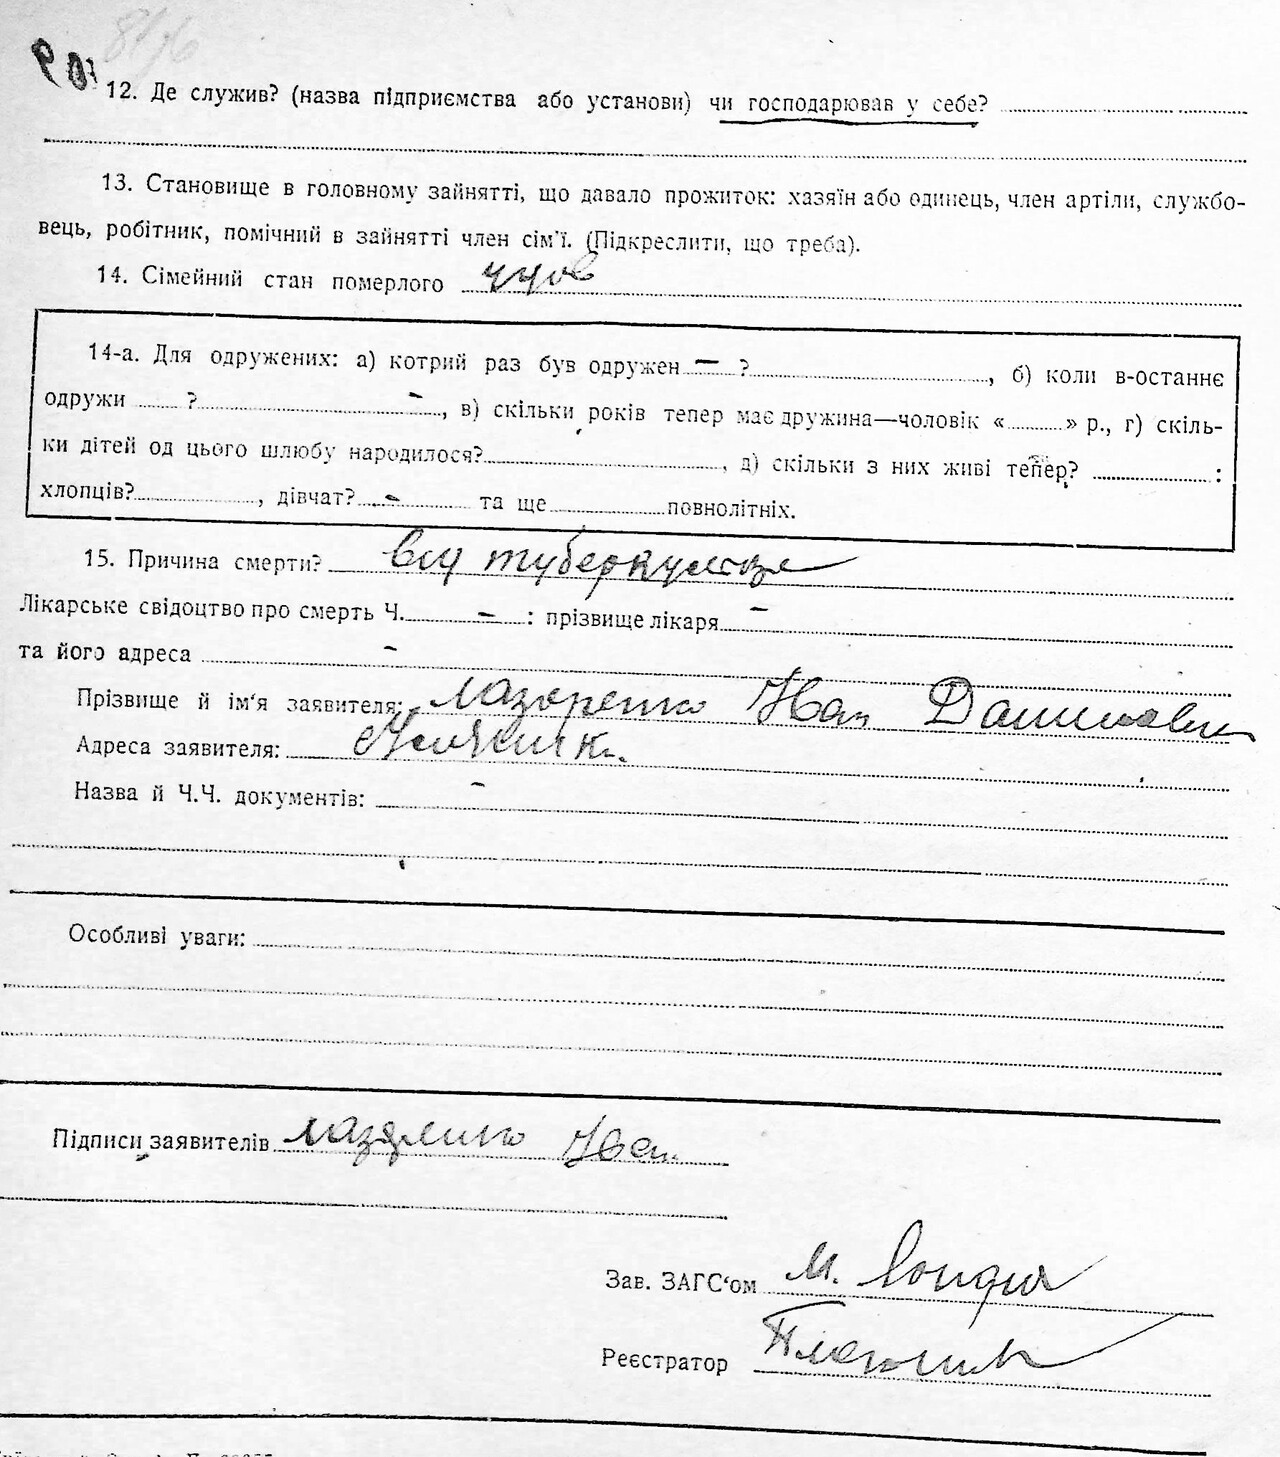 12. Де служив? (назва підприємства або установи) чи господарював у себе?
13. Становище в головному зайнятті, що давало прожиток: хазяїн або одинець, член артіли, службо-
вець, робітник, помічний в зайнятті член сім'ї. (Підкреслити, що треба).
14. Сімейний стан померлого
14-а. Для одружених: а) котрий раз був одружен — ?, б) коли в-останнє
одружи ? -, в) скільки років тепер має дружина—чоловік « » р., г) скіль-
ки дітей од цього шлюбу народилося?, д) скільки з них живі тепер? :
хлопців?, дівчат? - та ще повнолітніх.
15. Причина смерти? від туберкульоза
Лікарське свідоцтво про смерть Ч. - : прізвище лікаря -
та його адреса -
Прізвище й ім'я заявителя: Лазоренко Иван Данилович
Адреса заявителя:
Назва й Ч.Ч. документів: -
Особливі уваги:
Підписи заявителів Иван
Зав. ЗАГС'ом М.
Реєстратор